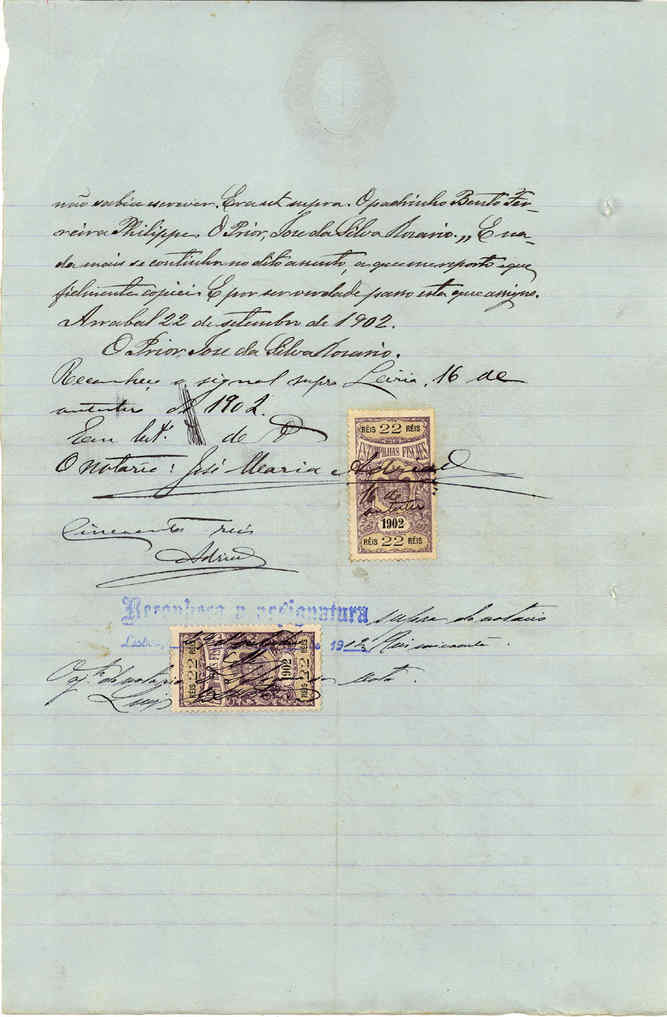 não sabia escrever. Era ut supra. O padrinho Bento Fer-
reira Philippe. O Prior, Jose da Silva Rosario. „ E na-
da mais se continha no dito assento, a que me reporto e que
fielmente copiei. E por ser verdade passo esta que assigno.
Arrabal 22 de setembro de 1902.
O Prior, Jose da Silva Rosario.
Reconheço o signal supra Leiria, 16 de
outubro de 1902.
Em test.º de
O notario: José Maria
RÉIS 22 RÉIS
ESTAMPILHAS FISCAES
16 de
outubro
1902
RÉIS 22 RÉIS
Cincoenta reis
Reconheço a assignatura supra do notario
Lisboa, 1902 Reis cincoenta.
RÉIS 22 RÉIS
1902
RÉIS 22 RÉIS
O aj.te do notario
Luiz